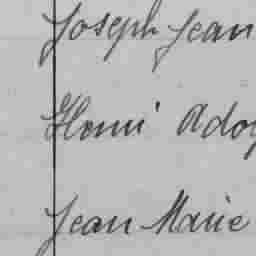 Joseph Jean
Henri Adop
Jean Marie